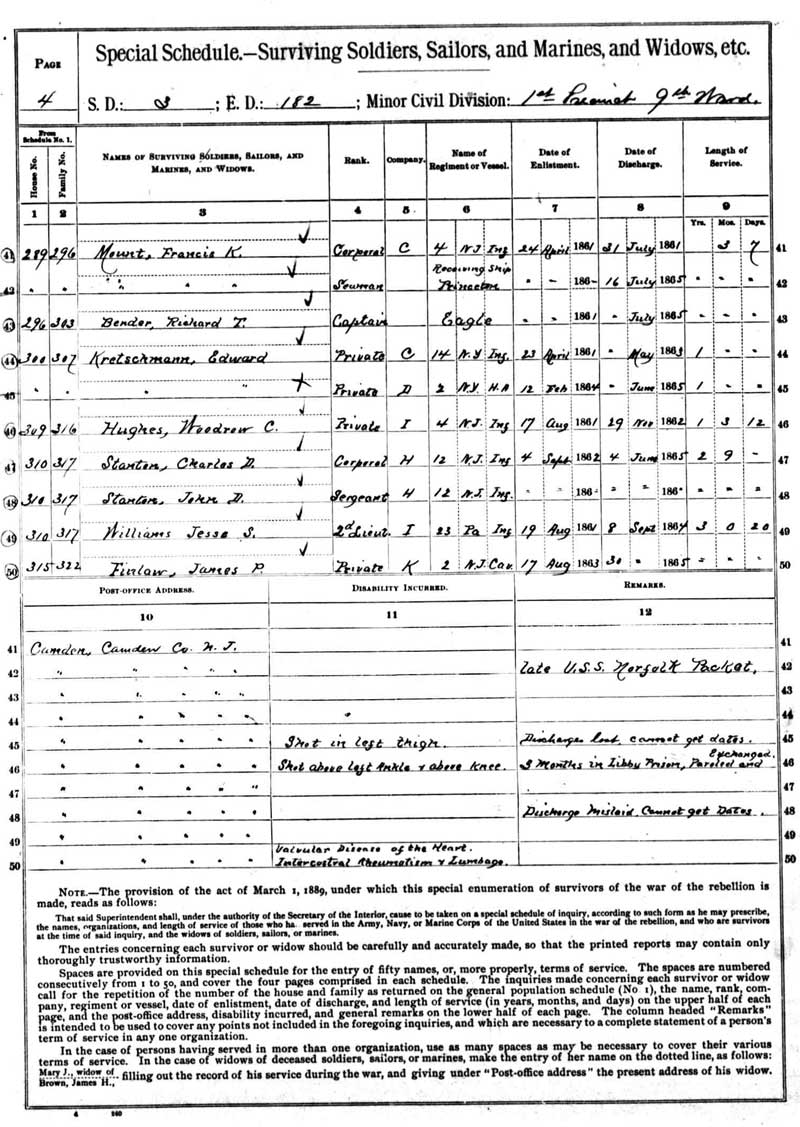 PAGE
4
Special Schedule.—Surviving Soldiers, Sailors, and Marines, and Widows, etc.
S. D.: 3 ; E. D.: 182 ; Minor Civil Division: 1st Precinct 9th Ward.
From Schedule No. 1.
House No. Family No. NAMES OF SURVIVING SOLDIERS, SAILORS, AND MARINES, AND WIDOWS. Rank. Company. Name of Regiment or Vessel. Date of Enlistment. Date of Discharge. Length of Service.
1 2 3 4 5 6 7 8 9
Yrs. Mos. Days.
41 289 296 Mount, Francis K. Corporal C 4 N.J. Inf 24 April 1861 31 July 1861 3 7 41
42 " " " " " Seaman Receiving Ship Princeton " – 186– 16 July 1865 " " " 42
43 296 303 Bender, Richard T. Captain Eagle " " 1861 " July 1865 " " " 43
44 300 307 Kretschmann, Edward Private C 14 N.Y Inf 23 April 1861 " May 1863 1 " " 44
45 " " " " Private D 2 N.Y. H.A 12 Feb 1864 " June 1865 1 " " 45
46 309 316 Hughes, Woodrow C. Private I 4 N.J. Inf 17 Aug 1861 29 Nov 1862 1 3 12 46
47 310 317 Stanton, Charles D. Corporal H 12 N.J. Inf 4 Sept 1862 4 June 1865 2 9 – 47
48 310 317 Stanton, John D. Sergeant H 12 N.J. Inf. " " 186 " " 186 " " " 48
49 310 317 Williams Jesse S. 2d Lieut. I 23 Pa Inf 19 Aug 1861 8 Sept 1864 3 0 20 49
50 315 322 Finlaw, James P. Private K 2 N.J. Cav. 17 Aug 1863 30 " 1865 " " " 50
POST-OFFICE ADDRESS. DISABILITY INCURRED. REMARKS.
10 11 12
41 Camden, Camden Co. N. J. 41
42 " " " " late U.S.S. Norfolk Packet. 42
43 " " " " " 43
44 " " " " " " 44
45 " " " " " Shot in left thigh. Discharges lost cannot get dates. 45
46 " " " " " Shot above left Ankle & above Knee. 3 Months in Libby Prison, Paroled and Exchanged. 46
47 " " " " " 47
48 " " " " " Discharge Mislaid. Cannot get Dates. 48
49 " " " " " 49
50 " " " " " Valvular Disease of the Heart. Intercostral Rheumatism & Lumbago. 50
NOTE.—The provision of the act of March 1, 1889, under which this special enumeration of survivors of the war of the rebellion is
made, reads as follows:
That said Superintendent shall, under the authority of the Secretary of the Interior, cause to be taken on a special schedule of inquiry, according to such form as he may prescribe,
the names, organizations, and length of service of those who ha. served in the Army, Navy, or Marine Corps of the United States in the war of the rebellion, and who are survivors
at the time of said inquiry, and the widows of soldiers, sailors, or marines.
The entries concerning each survivor or widow should be carefully and accurately made, so that the printed reports may contain only
thoroughly trustworthy information.
Spaces are provided on this special schedule for the entry of fifty names, or, more properly, terms of service. The spaces are numbered
consecutively from 1 to 50, and cover the four pages comprised in each schedule. The inquiries made concerning each survivor or widow
call for the repetition of the number of the house and family as returned on the general population schedule (No. 1), the name, rank, com-
pany, regiment or vessel, date of enlistment, date of discharge, and length of service (in years, months, and days) on the upper half of each
page, and the post-office address, disability incurred, and general remarks on the lower half of each page. The column headed "Remarks"
is intended to be used to cover any points not included in the foregoing inquiries, and which are necessary to a complete statement of a person's
term of service in any one organization.
In the case of persons having served in more than one organization, use as many spaces as may be necessary to cover their various
terms of service. In the case of widows of deceased soldiers, sailors, or marines, make the entry of her name on the dotted line, as follows:
Mary J., widow of
Brown, James H., filling out the record of his service during the war, and giving under "Post-office address" the present address of his widow.